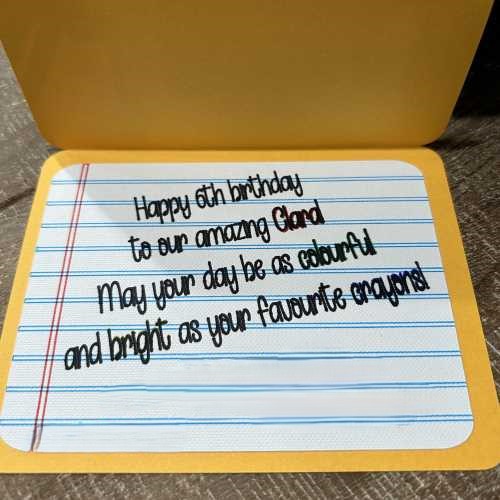 Happy 6th birthday
to our amazing
May your day be as colourful
and bright as your favourite crayons!